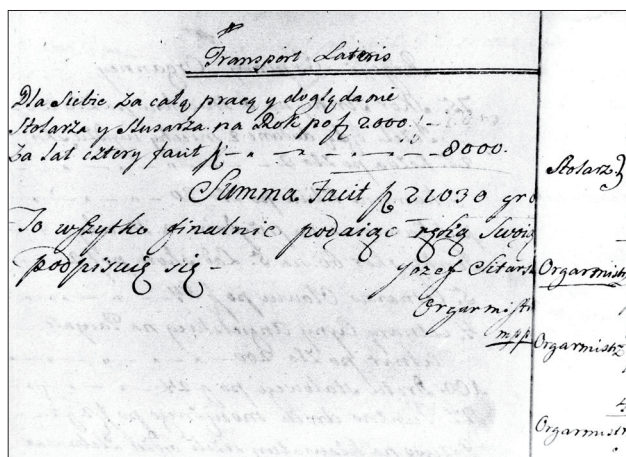 Transport Lateris
Dla Siebie za całą pracę y doglądanie
Stolarza y Slusarza na Rok po f 2000.
Za lat cztery facit f 8000.
Summa Facit f 21030 gro
To wszytko finalnie podaiąc ręką Swoią
podpisuię się - Jozef Sitarski
Orgarmistr
mpp
Stolarz
Orgarmistrz
Orgarmistrz
Orgarmistrz